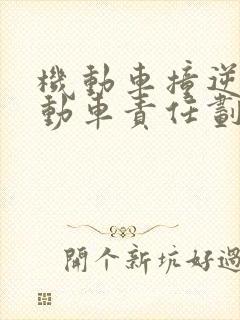 機動車撞逆
動車責任劃
開個新坑好過